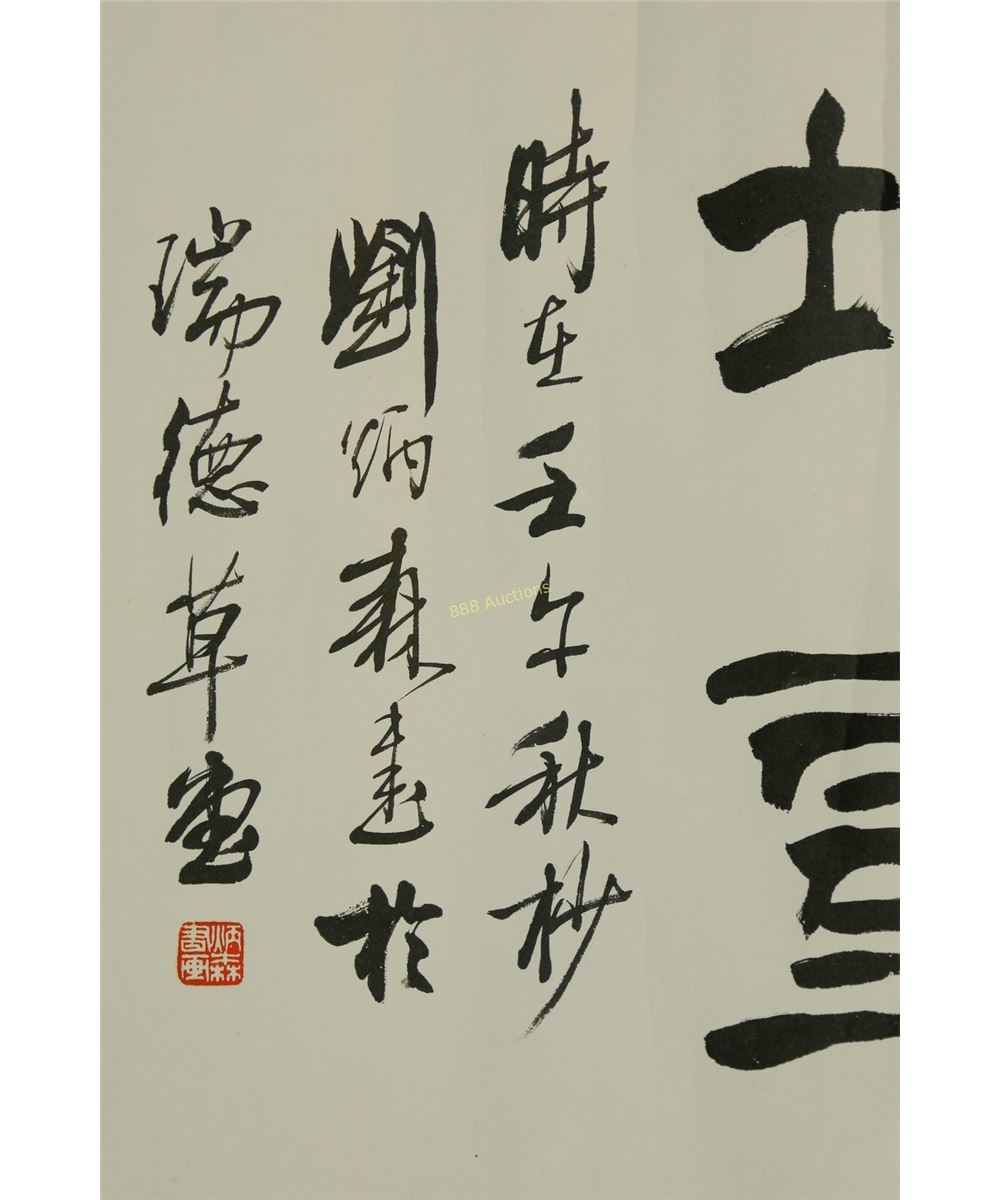 時在壬午秋杪
劉炳森於
瑞德草堂
炳森
書畫
888 Auctions